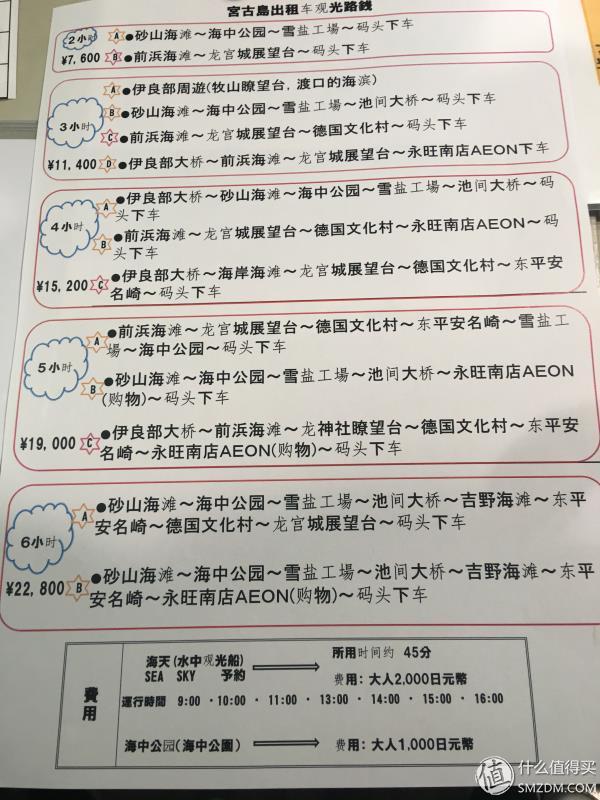 宮古島出租车观光路銭
2小时
A ●砂山海滩～海中公园～雪盐工場～码头下车
¥7,600 B ●前浜海滩～龙宫城展望台～码头下车
3小时
A ●伊良部周遊(牧山瞭望台, 渡口的海滨)
B ●砂山海滩～海中公园～雪盐工場～池间大桥～码头下车
C ●前浜海滩～龙宫城展望台～德国文化村～码头下车
¥11,400 D ●伊良部大桥～前浜海滩～龙宫城展望台～永旺南店AEON下车
4小时
A ●伊良部大桥～砂山海滩～海中公园～雪盐工場～池间大桥～码
头下车
B ●前浜海滩～龙宫城展望台～德国文化村～永旺南店AEON～码
头下车
¥15,200 C ●伊良部大桥～海岸海滩～龙宫城展望台～德国文化村～东平安
名崎～码头下车
5小时
A ●前浜海滩～龙宫城展望台～德国文化村～东平安名崎～雪盐工
場～海中公园～码头下车
B ●砂山海滩～海中公园～雪盐工場～池间大桥～永旺南店AEON
(购物)～码头下车
¥19,000 C ●伊良部大桥～前浜海滩～龙神社瞭望台～德国文化村～东平安
名崎～永旺南店AEON(购物)～码头下车
6小时
A ●砂山海滩～海中公园～雪盐工場～池间大桥～吉野海滩～东平
安名崎～德国文化村～龙宫城展望台～码头下车
¥22,800 B ●砂山海滩～海中公园～雪盐工場～池间大桥～吉野海滩～东平
安名崎～永旺南店AEON(购物)～码头下车
費用
海天(水中观光船) 所用时间约 45分
SEA SKY 予約 费用: 大人2,000日元幣
運行時間 9:00 ・10:00 ・ 11:00 ・ 13:00 ・ 14:00 ・ 15:00 ・ 16:00
海中公园(海中公園) 费用: 大人1,000日元幣
值 什么值得买
SMZDM.COM